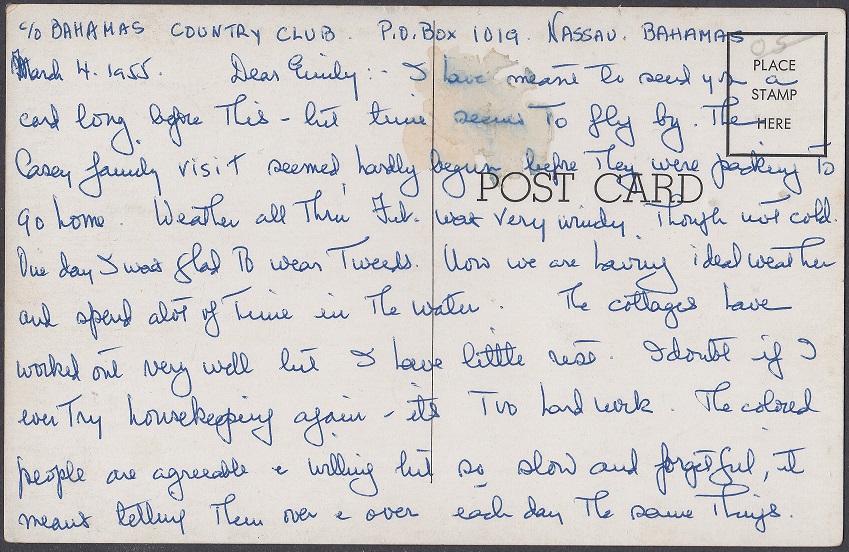 c/o BAHAMAS COUNTRY CLUB. P.O. BOX 1019. NASSAU. BAHAMAS
05
PLACE
STAMP
HERE
March 4. 1955. Dear Emily:- I have meant to send you a
card long before this - but time seems to fly by. The
Casey family visit seemed hardly begun before they were packing to
POST CARD
go home. Weather all thru Feb. was very windy though not cold.
One day I was glad to wear Tweeds. Now we are having ideal weather
and spend alot of time in the water. The cottages have
worked out very well but I have little rest. I doubt if I
ever try housekeeping again - it's too hard work. The colored
people are agreeable & willing but so slow and forgetful, it
means telling them over & over each day the same things.